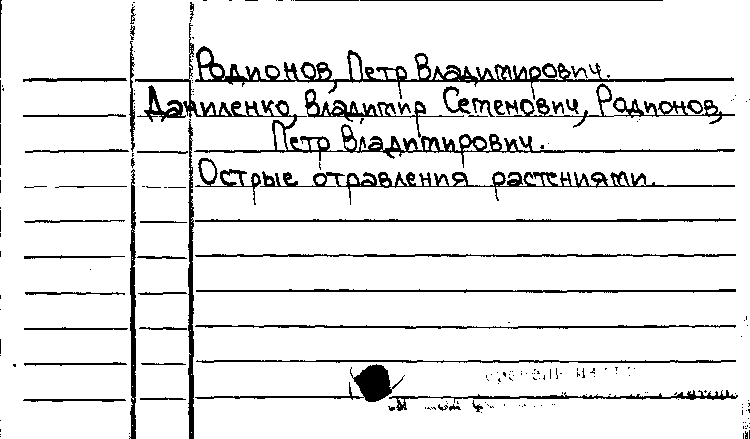 Родионов, Петр Владимирович.
Даниленко, Владимир Семенович, Родионов,
Петр Владимирович.
Острые отравления растениями.